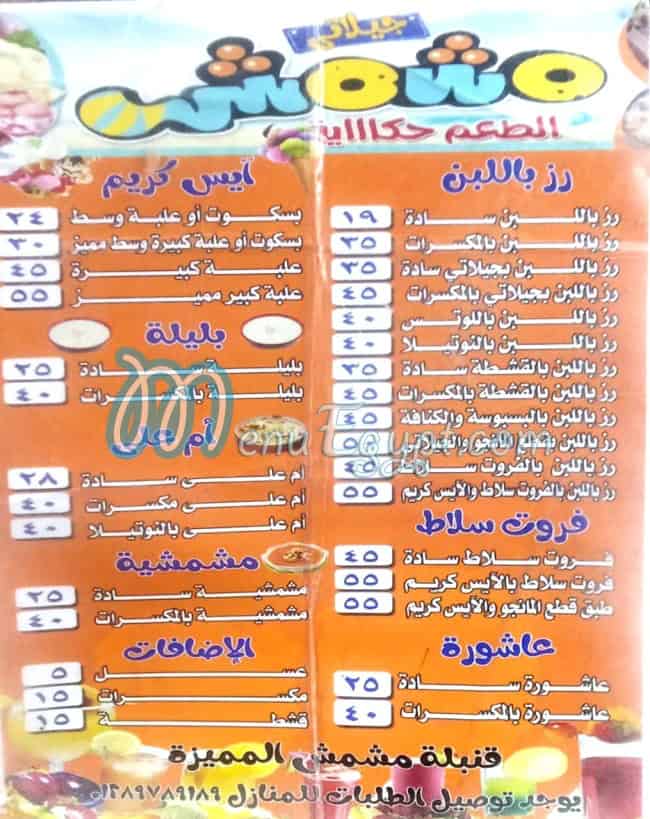 جيلاتي
مشمش
الطعم حكاااية
رز باللبن
رز باللبن سادة ١٩
رز باللبن بالمكسرات ٣٥
رز باللبن بجيلاتي سادة ٣٥
رز باللبن بجيلاتي بالمكسرات ٤٥
رز باللبن باللوتس ٤٠
رز باللبن بالنوتيلا ٤٠
رز باللبن بالقشطة سادة ٣٥
رز باللبن بالقشطة بالمكسرات ٤٥
رز باللبن بالبسبوسة والكنافة ٤٥
رز باللبن بقطع المانجو والجيلاتي ٥٥
رز باللبن بالفروت سلاط ٤٥
رز باللبن بالفروت سلاط والأيس كريم ٥٥
فروت سلاط
فروت سلاط سادة ٤٥
فروت سلاط بالأيس كريم ٥٥
طبق قطع المانجو والأيس كريم ٥٥
عاشورة
عاشورة سادة ٢٥
عاشورة بالمكسرات ٤٠
آيس كريم
بسكوت أو علبة وسط ٢٤
بسكوت أو علبة كبيرة وسط مميز ٣٠
علبة كبيرة ٤٥
علبة كبير مميز ٥٥
بليلة
بليلة سادة ٢٥
بليلة بالمكسرات ٤٠
أم على
أم على سادة ٢٨
أم على مكسرات ٤٠
أم على بالنوتيلا ٤٠
مشمشية
مشمشية سادة ٢٥
مشمشية بالمكسرات ٤٠
الإضافات
عسل ٥
مكسرات ١٥
قشطة ١٥
قنبلة مشمش المميزة
يوجد توصيل الطلبات للمنازل ٠١٢٨٩٧٨٩١٨٩
MenuEgypt.com